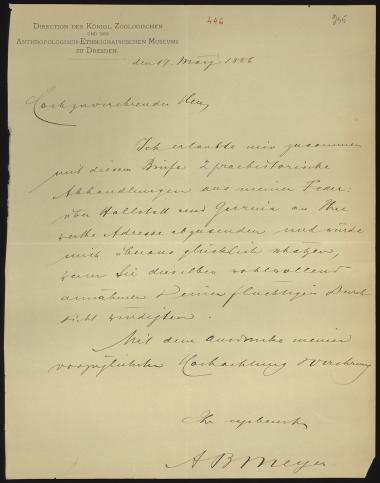 446
DIRECTION DER KÖNIGL. ZOOLOGISCHEN
UND DES
ANTHROPOLOGISCH-ETHNOGRAPHISCHEN MUSEUMS
ZU DRESDEN.
den 19. März 1886
Hochzuverehrender Herr,
Ich erlaubte mir zusammen
mit diesem Briefe 2 praehistorische
Abhandlungen aus meiner Feder:
über Hallstatt und Gurina an Ihre
werthe Adresse abzusenden und würde
mich überaus glücklich schätzen,
wenn Sie dieselben wohlwollend
annähmen & einer flüchtigen Durch
sicht würdigten.
Mit dem Ausdrucke meiner
vorzüglichsten Hochachtung & Verehrung
Ihr ergebenster
A B Meyer